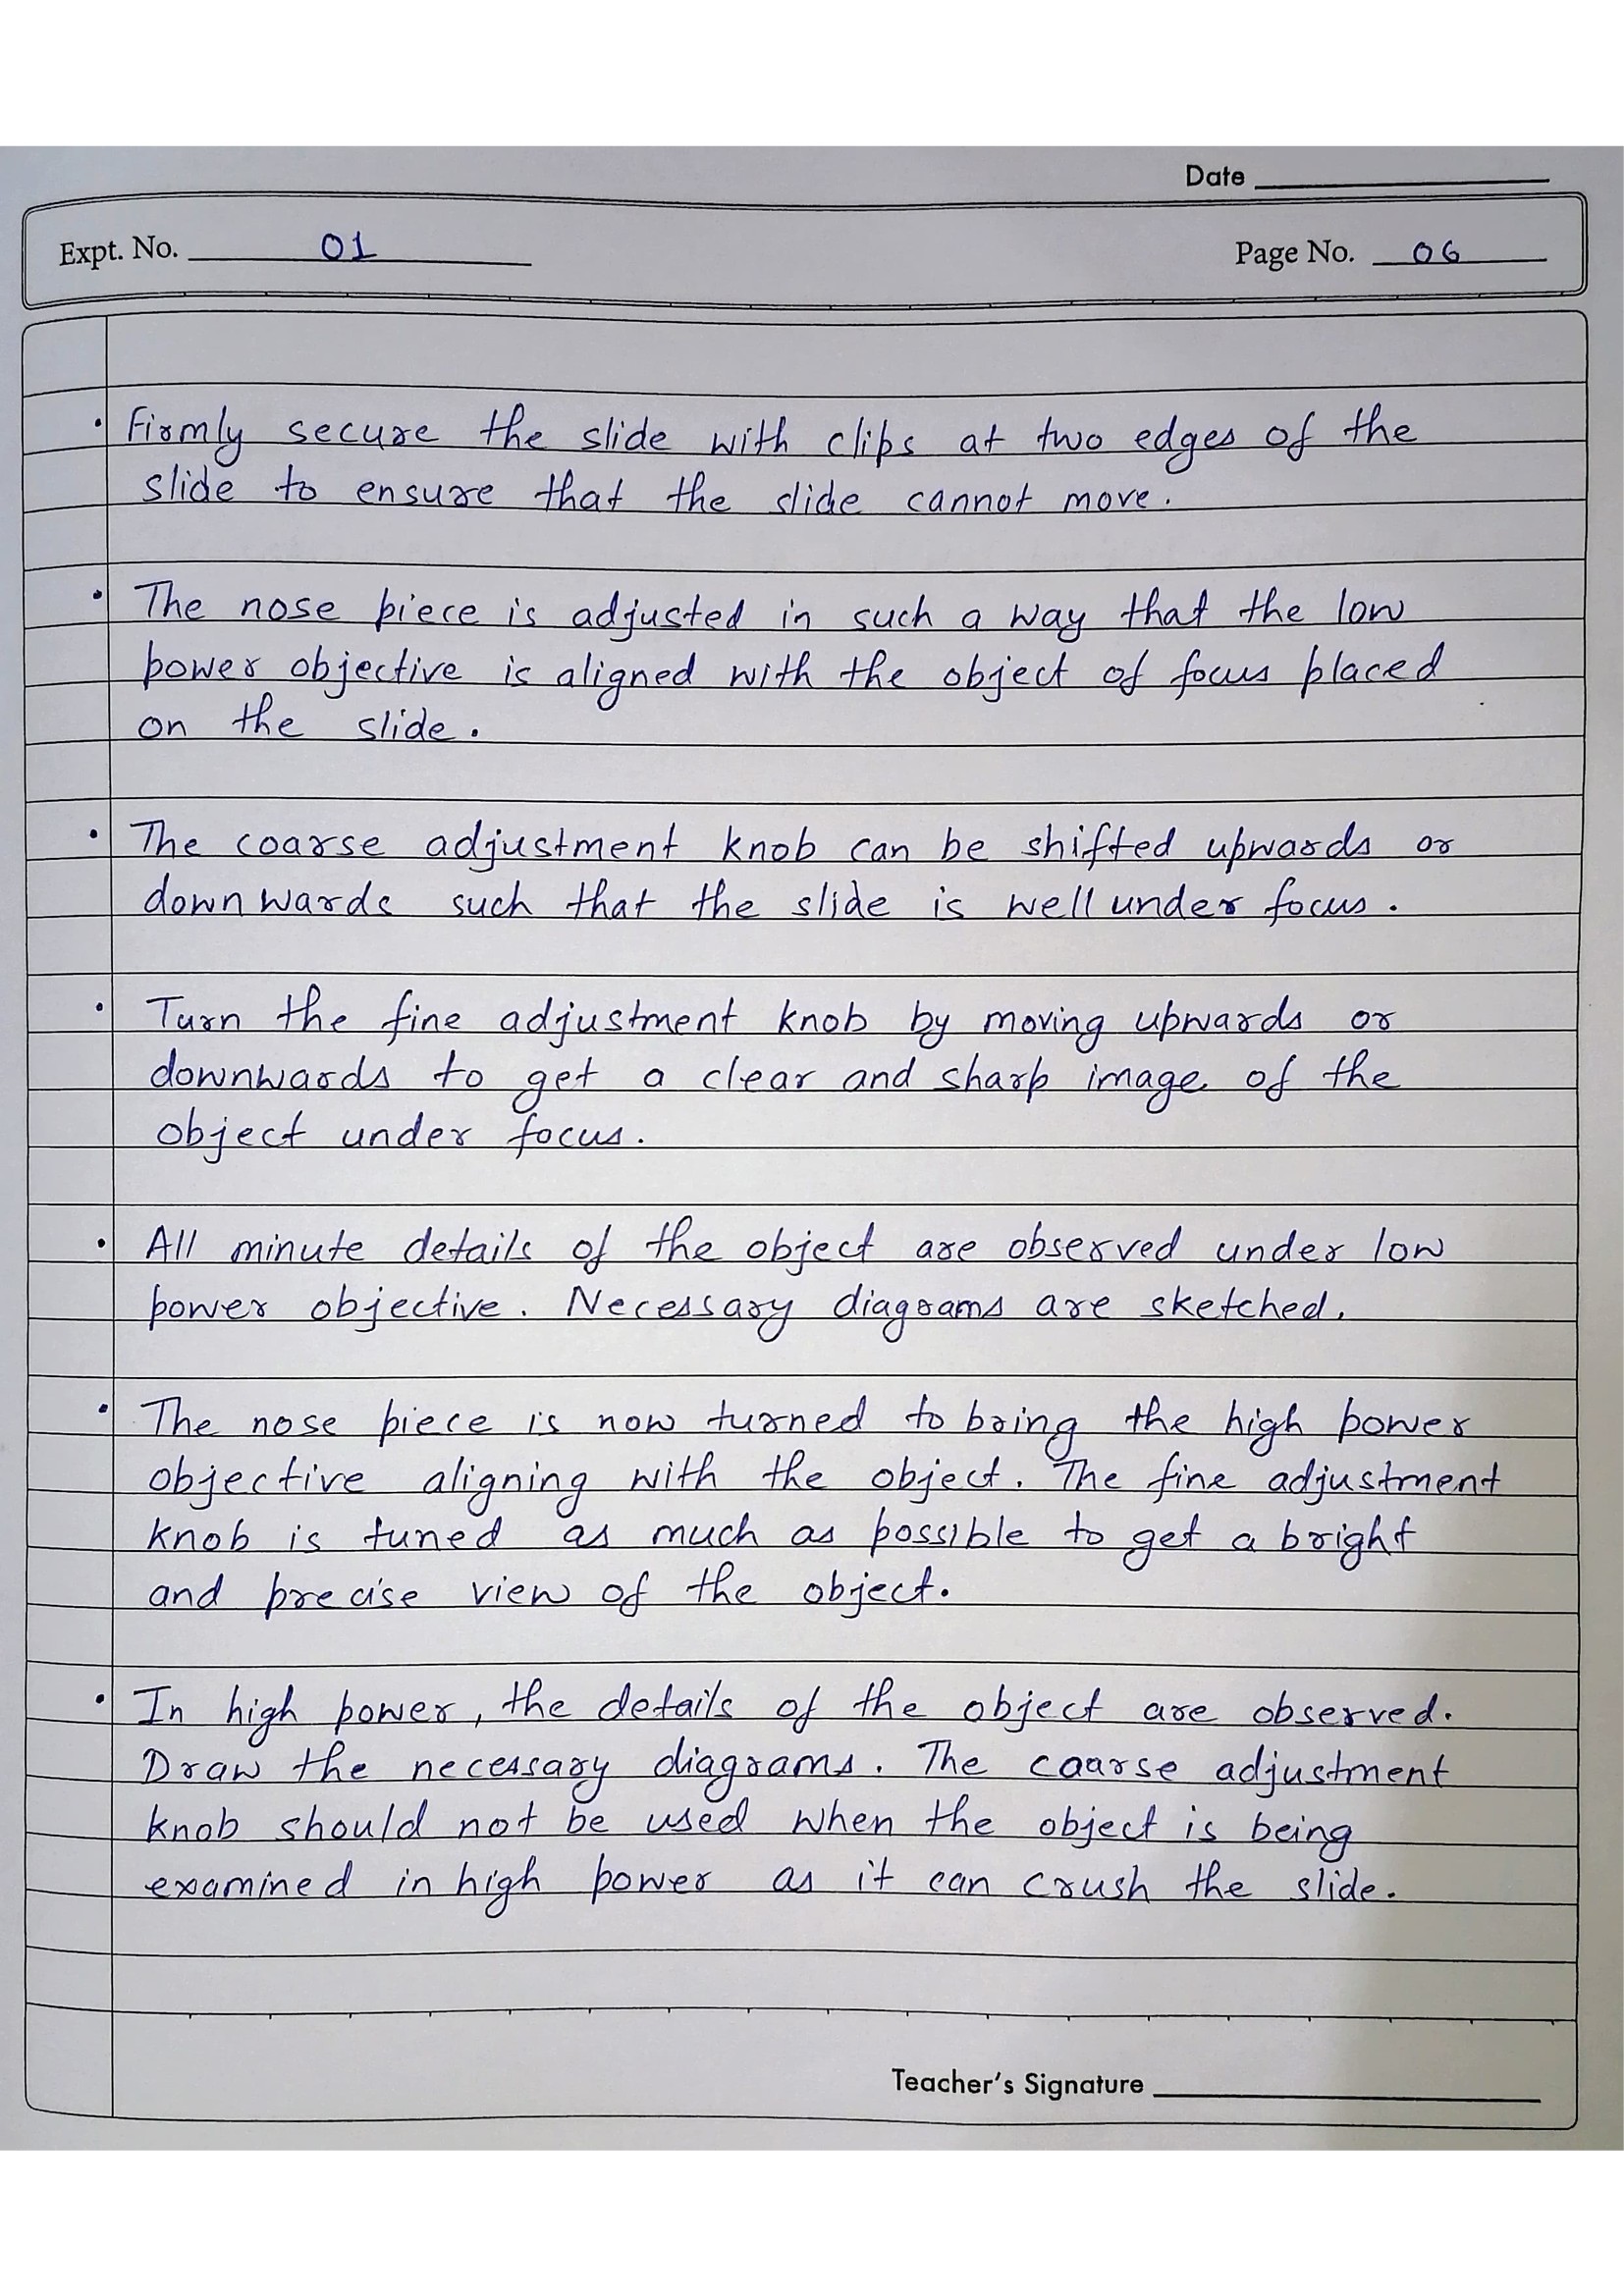 Date
Expt. No. 01
Page No. 06
• Firmly secure the slide with clips at two edges of the
slide to ensure that the slide cannot move.
• The nose piece is adjusted in such a way that the low
power objective is aligned with the object of focus placed
on the slide.
• The coarse adjustment knob can be shifted upwards or
downwards such that the slide is well under focus.
• Turn the fine adjustment knob by moving upwards or
downwards to get a clear and sharp image of the
object under focus.
• All minute details of the object are observed under low
power objective. Necessary diagrams are sketched.
• The nose piece is now turned to bring the high power
objective aligning with the object. The fine adjustment
knob is tuned as much as possible to get a bright
and precise view of the object.
• In high power, the details of the object are observed.
Draw the necessary diagrams. The coarse adjustment
knob should not be used when the object is being
examined in high power as it can crush the slide.
Teacher's Signature